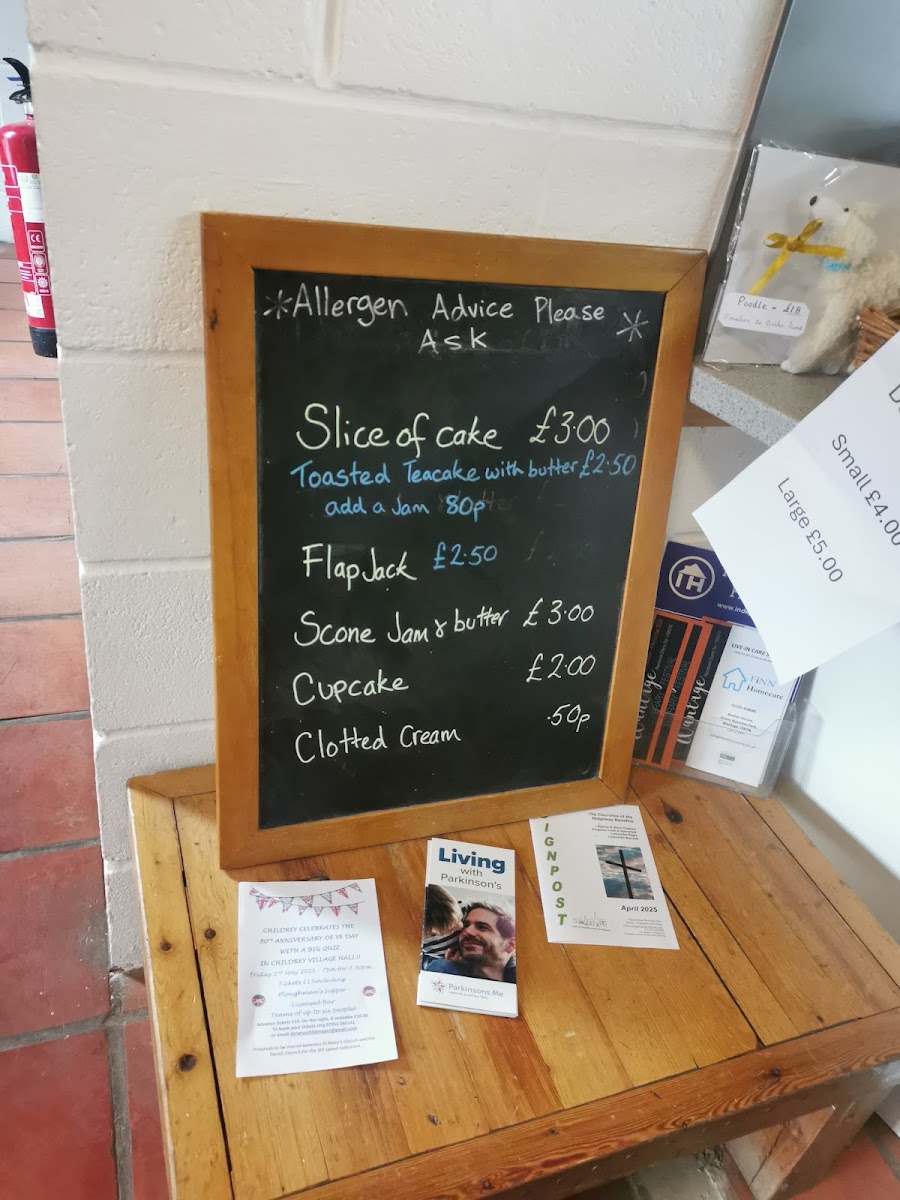 *Allergen Advice Please *
Ask
Slice of cake £3.00
Toasted Teacake with butter £2.50
add a Jam 80p
FlapJack £2.50
Scone Jam & butter £3.00
Cupcake £2.00
Clotted Cream .50p
Poodle - £18
Small £4.00
Large £5.00
IH
LIVE-IN CARE
FINN
Homecare
Wantage
Wantage
CHILDREY CELEBRATES THE
80TH ANNIVERSARY OF VE DAY
WITH A BIG QUIZ
IN CHILDREY VILLAGE HALL!!
Friday 2nd May 2025 - 7pm for 7.30pm
Tickets £15 including
Ploughman's Supper
Licensed Bar
Teams of up to six people!
Living
with
Parkinson's
Parkinsons.Me
IGNPOST
The Churches of the
Ridgeway Benefice
April 2025